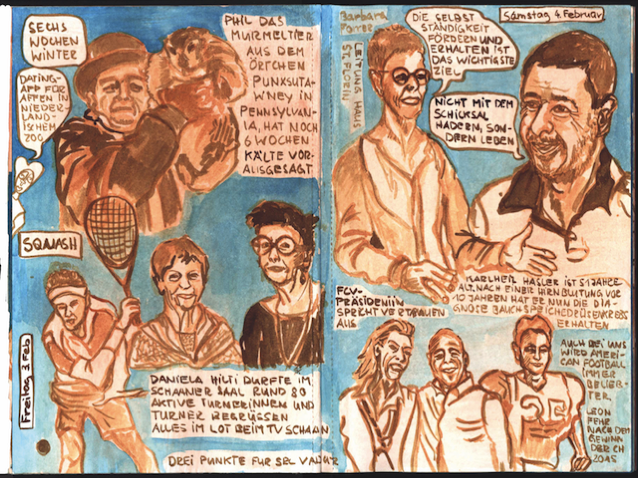 SECHS
WOCHEN
WINTER
DATING-
APP FÜR
AFFEN IN
NIEDER-
LAND-
ISCHEM
ZOO
PHIL DAS
MURMELTIER
AUS DEM
ÖRTCHEN
PUNXSUTA-
WNEY IN
PENNSYLVAN-
IA, HAT NOCH
6 WOCHEN
KÄLTE VOR-
AUSGESAGT
SQUASH
Freitag 3. Feb
DANIELA HILTI DURFTE IM
SCHAANER SAAL RUND 80
AKTIVE TURNERINNEN UND
TURNER BEGRÜSSEN
ALLES IM LOT BEIM TV SCHAAN
DREI PUNKTE FÜR SRL VADUZ
Barbara
LEITUNG HAUS
ST. FLORIN
DIE SELBST
STÄNDIGKEIT
FÖRDERN UND
ERHALTEN IST
DAS WICHTIGSTE
ZIEL
Samstag 4. Februar
NICHT MIT DEM
SCHICKSAL
HADERN, SON-
DERN LEBEN
KARLHEINZ HASLER IST 51 JAHRE
ALT. NACH EINER HIRNBLUTUNG VOR
10 JAHREN HAT ER NUN DIE DIA-
GNOSE BAUCHSPEICHEDRÜSENKREBS
ERHALTEN
PRÄSIDENTIN
SPRICHT VERTRAUEN
AUS
AUCH BEI UNS
WIRD AMERI-
CAN FOOTBALL
IMMER
BELIEB-
TER.
LEON
FEHR
NACH DEM
GEWINN
DER CH